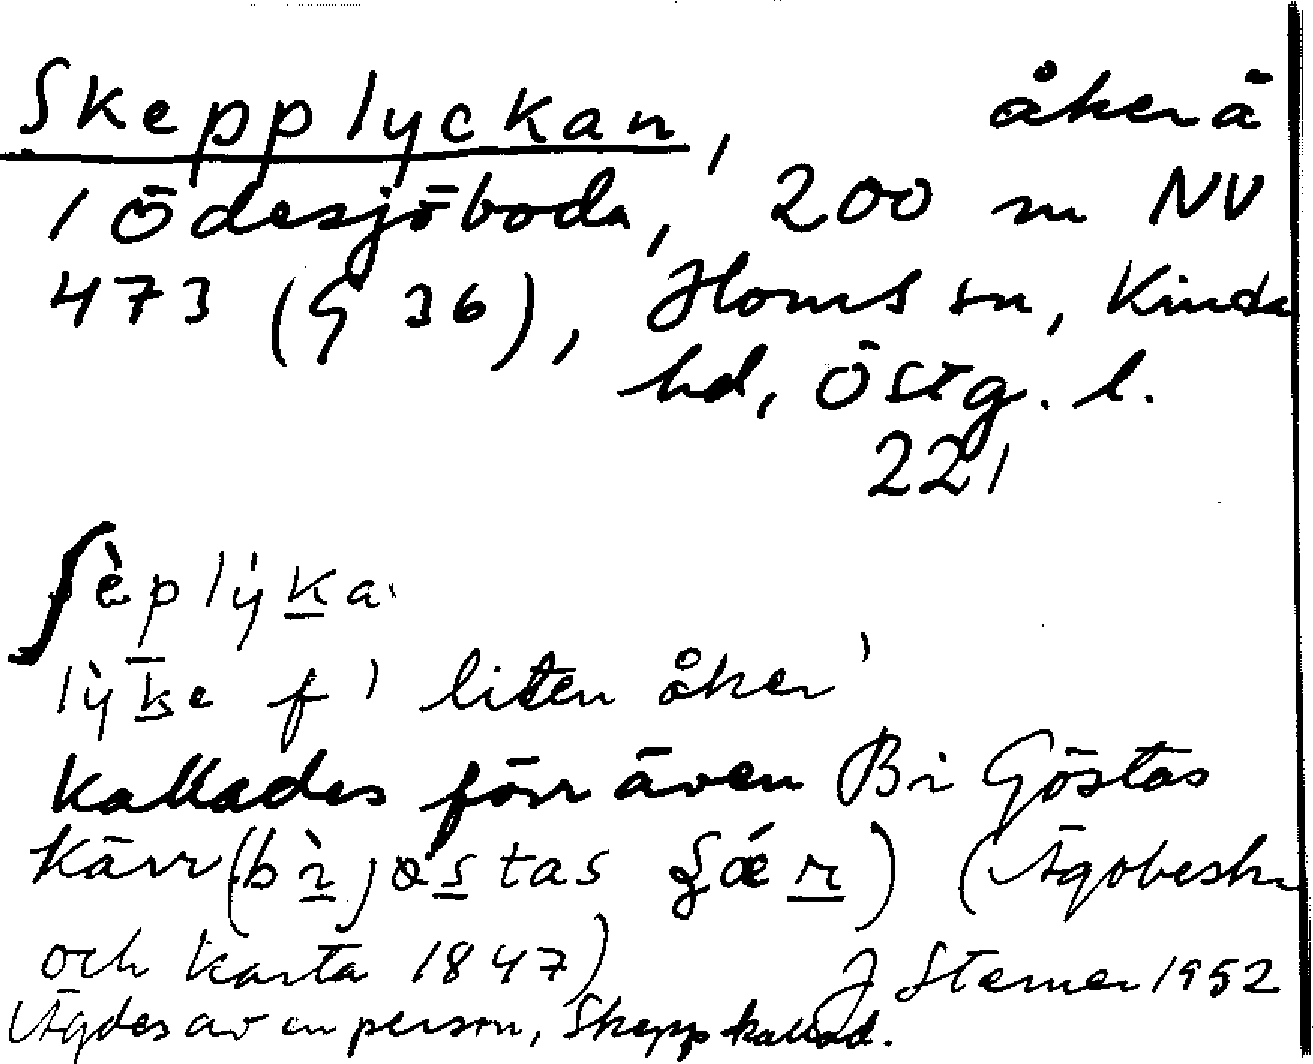 Skepplyckan, åker ä
1 Ödesjöboda, 200 m NV
473 (G 36), Homs sn, Kinda
hd, Östg. l.
221
ʃèplýka
lỳke f ' liten åker '
kallades förr även Bi Göstas
Kärr (bi jøstas ær) (Ägobeskr
och karta 1847) J Sterner 1952
Ägdes av en person, Skepp kallad.